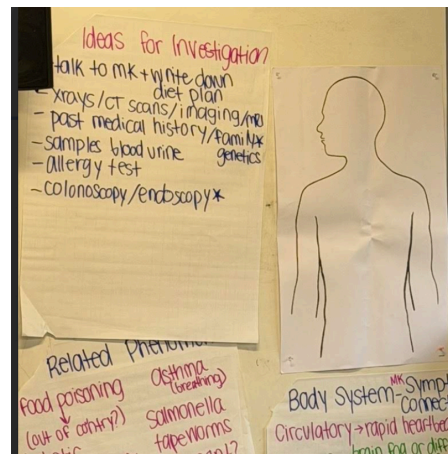 Ideas for Investigation
talk to MK + write down
diet plan
- xrays/CT scans/imaging/MRI
- past medical history/family*
genetics
- samples blood urine
- allergy test
- colonoscopy/endoscopy*
Related
Food poisoning
(out of contry?)
Asthma
(breathing)
Salmonella
tapeworms
Body System - MK Sympt
connec
Circulatory → rapid heartbea
brain fog or diff